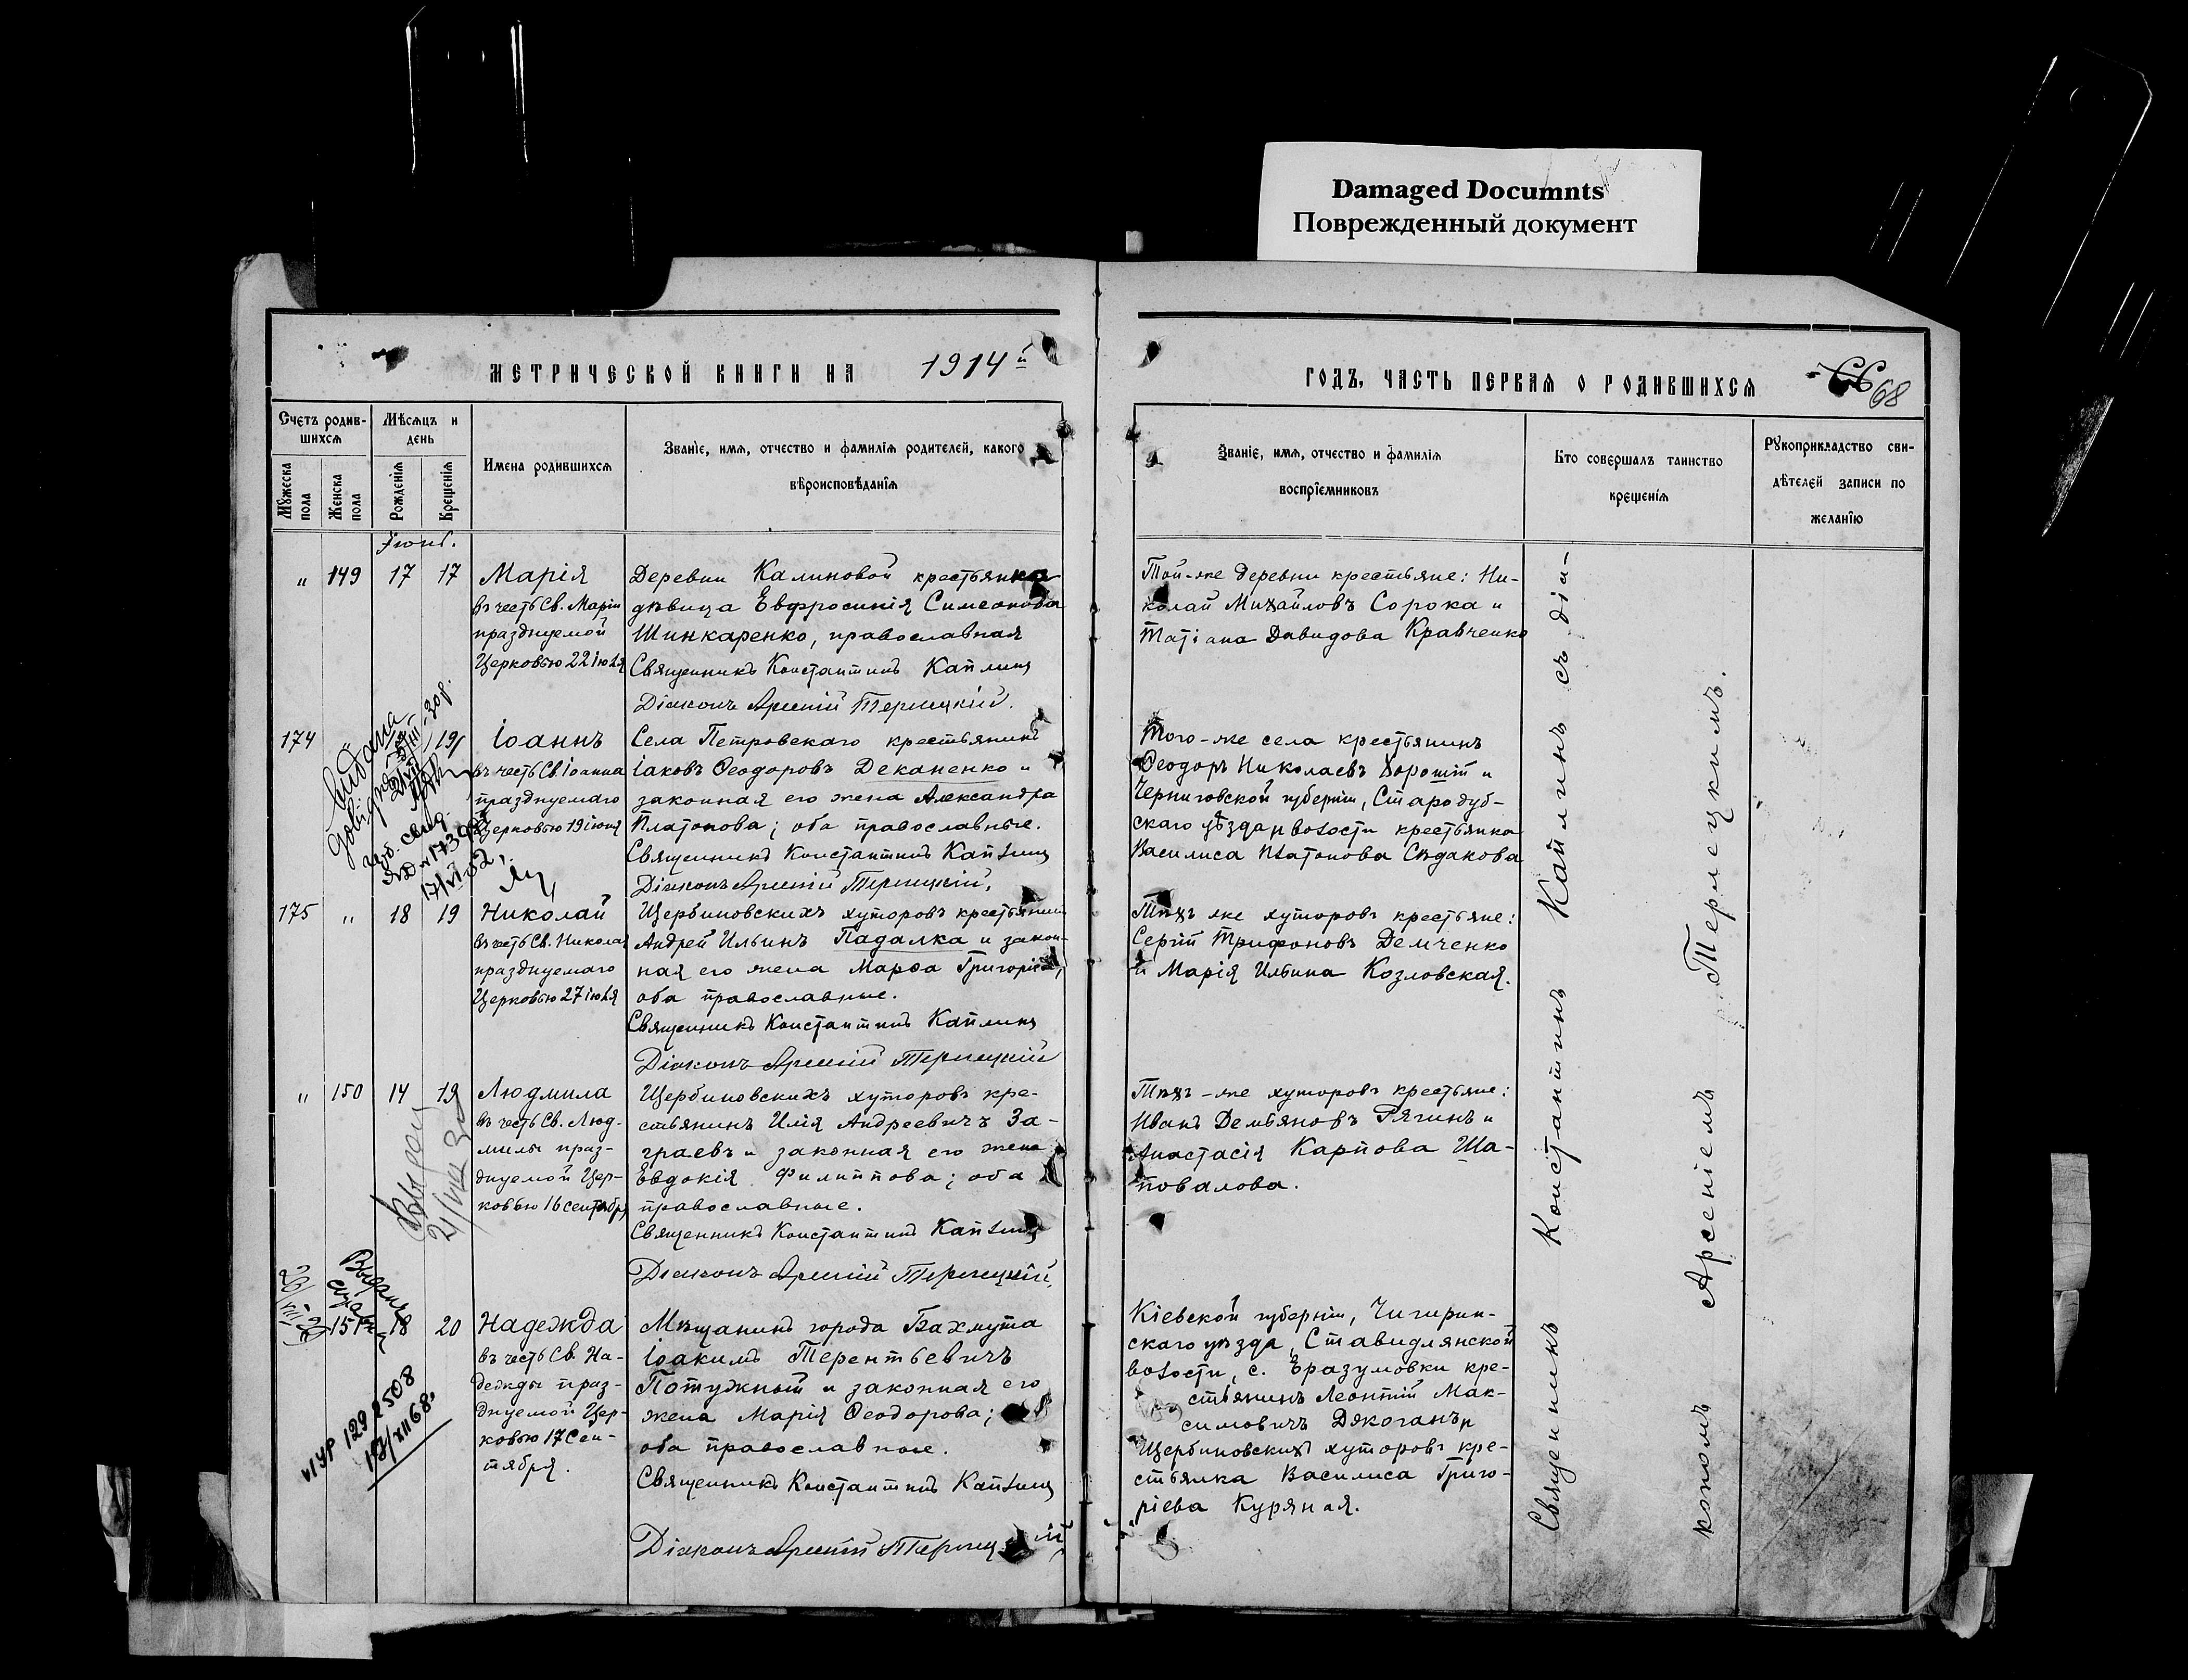 Damaged Documnts
Поврежденный документ
МЕТРИЧЕСКОЙ КНИГИ НА 1914й
ГОДЪ, ЧАСТЬ ПЕРВАЯ О РОДИВШИХСЯ
66 68
Счетъ родив-
шихся
Мужеска пола
Женска пола
Мѣсяцъ и
день
Рожденія
Крещенія
Имена родившихся
Званіе, имя, отчество и фамилія родителей, какого
вѣроисповѣданія
Званіе, имя, отчество и фамилія
воспріемниковъ
Кто совершалъ таинство
крещенія
Рукоприкладство сви-
дѣтелей записи по
желанію
Іюнь.
" 149 17 17
Марія
въ честь Св. Маріи
празднуемой
Церковью 22 іюля
Деревни Калиновой крестьянка
дѣвица Евфросинія Симеонова
Шинкаренко, православная
Священникъ Константинъ Каплинъ
Діаконъ Арсеній Терлецкій.
Той-же деревни крестьяне: Ни-
колай Михайловъ Сорока и
Татіана Давидова Кравченко
174 19
Іоаннъ
въ честь Св. Іоанна
празднуемаго
Церковью 19 іюня
Села Петровскаго крестьянинъ
Іаковъ Ѳеодоровъ Деканенко и
законная его жена Александра
Платонова; оба православные.
Священникъ Константинъ Каплинъ
Діаконъ Арсеній Терлецкій.
Того-же села крестьянинъ
Ѳеодоръ Николаевъ Хорошій и
Черниговской губерніи, Стародуб-
скаго уѣзда и волости крестьянка
Василиса Платонова Сѣдакова
17/VI-52
175 " 18 19
Николай
въ честь Св. Николая
празднуемаго
Церковью 27 іюля
Щербиновскихъ хуторовъ крестьянинъ
Андрей Ильинъ Падалка и закон-
ная его жена Марѳа Григорьева,
оба православные.
Священникъ Константинъ Каплинъ
Діаконъ Арсеній Терлецкій
Тѣхъ же хуторовъ крестьяне:
Сергій Трифоновъ Демченко
и Марія Ильина Козловская.
" 150 14 19
Людмила
въ честь Св. Люд-
милы праз-
днуемой Цер-
ковью 16 сентября
Щербиновскихъ хуторовъ кре-
стьянинъ Илія Андреевичъ За-
граевъ и законная его жена
Евдокія Филиппова; оба
православные.
Священникъ Константинъ Каплинъ
Діаконъ Арсеній Терлецкій.
Тѣхъ-же хуторовъ крестьяне:
Иванъ Демьяновъ Рягинъ и
Анастасія Карпова Ша-
повалова.
151 18 20
Надежда
въ честь Св. На-
дежды праз-
днуемой Цер-
ковью 17 Сен-
тября.
Мѣщанинъ города Бахмута
Іоакимъ Терентьевичъ
Потужный и законная его
жена Марія Ѳеодорова;
оба православные.
Священникъ Константинъ Каплинъ
Діаконъ Арсеній Терлецкій
Кіевской губерніи, Чигирин-
скаго уѣзда, Ставидлянской
волости, с. Еразумовки кре-
стьянинъ Леонтій Мак-
симовичъ Дякоганъ и
Щербиновскихъ хуторовъ кре-
стьянка Василиса Григо-
ріева Куряная.
1292508
Священникъ Константинъ Каплинъ съ діа-
кономъ Арсеніемъ Терлецкимъ.